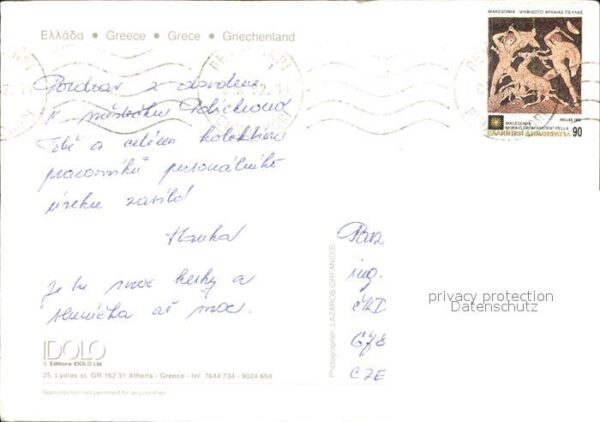 Ελλάδα • Greece • Grece • Griechenland
ΜΑΚΕΔΟΝΙΑ - ΨΗΦΙΔΩΤΟ ΑΡΧΑΙΑΣ ΠΕΛΛΑΣ
Pozdrav z dovolené
v městečku Polichrono
Tobě a celému kolektivu
pracovníků personálního
úseku zasílá
Hanka
Je tu moc hezky a
sluníčka až moc.
MACEDONIA
MOSAIC FROM ANCIENT PELLA
HELLAS
ΕΛΛΗΝΙΚΗ ΔΗΜΟΚΡΑΤΙΑ 90
ing.
privacy protection
Datenschutz
CZE
Photographer: LAZAROS ORFANIDIS
IDOLO
© Editions IDOLO Ltd
25, Lydras st. GR-162.31 Athens - Greece - tel. 7644.734 - 9024.654
Reproduction not permitted for any countries